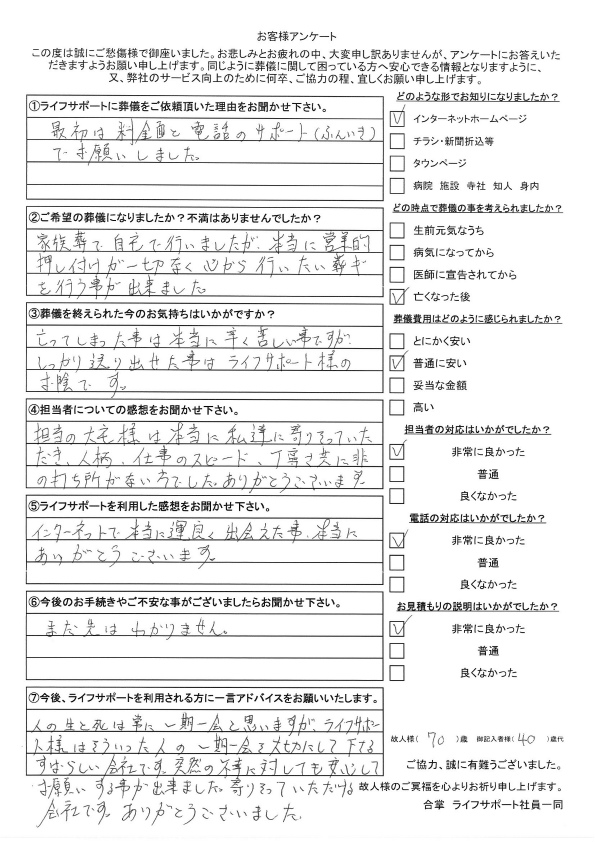 お客様アンケート
この度は誠にご愁傷様で御座いました。お悲しみとお疲れの中、大変申し訳ありませんが、アンケートにお答えいた
だきますようお願い申し上げます。同じように葬儀に関して困っている方へ安心できる情報となりますように、
又、弊社のサービス向上のために何卒、ご協力の程、宜しくお願い申し上げます。
①ライフサポートに葬儀をご依頼頂いた理由をお聞かせ下さい。
最初は料金面と電話のサポート(ふんいき)
でお願いしました。
②ご希望の葬儀になりましたか？不満はありませんでしたか？
家族葬で自宅で行いましたが、本当に営業的
押し付けが一切なく心から行いたい葬ギ
を行う事が出来ました。
③葬儀を終えられた今のお気持ちはいかがですか？
亡ってしまった事は本当に辛く苦しい事ですが、
しっかり送り出せた事はライフサポート様の
お陰です。
④担当者についての感想をお聞かせ下さい。
担当の大宅様は本当に私達に寄りそっていた
だき、人柄、仕事のスピード、丁寧さ共に非
の打ち所がない方でした。ありがとうございます。
⑤ライフサポートを利用した感想をお聞かせ下さい。
インターネットで本当に運良く出会えた事、本当に
ありがとうございます。
⑥今後のお手続きやご不安な事がございましたらお聞かせ下さい。
まだ先はわかりません。
⑦今後、ライフサポートを利用される方に一言アドバイスをお願いいたします。
人の生と死は常に一期一会と思いますが、ライフサポー
ト様はそういった人の一期一会を大切にして下さる
すばらしい会社です。突然の不幸に対しても安心して
お願いする事が出来ました。寄りそっていただける
会社です。ありがとうございました。
どのような形でお知りになりましたか？
インターネットホームページ
チラシ・新聞折込等
タウンページ
病院 施設 寺社 知人 身内
どの時点で葬儀の事を考えられましたか？
生前元気なうち
病気になってから
医師に宣告されてから
亡くなった後
葬儀費用はどのように感じられましたか？
とにかく安い
普通に安い
妥当な金額
高い
担当者の対応はいかがでしたか？
非常に良かった
普通
良くなかった
電話の対応はいかがでしたか？
非常に良かった
普通
良くなかった
お見積もりの説明はいかがでしたか？
非常に良かった
普通
良くなかった
故人様( 70 )歳 御記入者様( 40 )歳代
ご協力、誠に有難うございました。
故人様のご冥福を心よりお祈り申し上げます。
合掌 ライフサポート社員一同